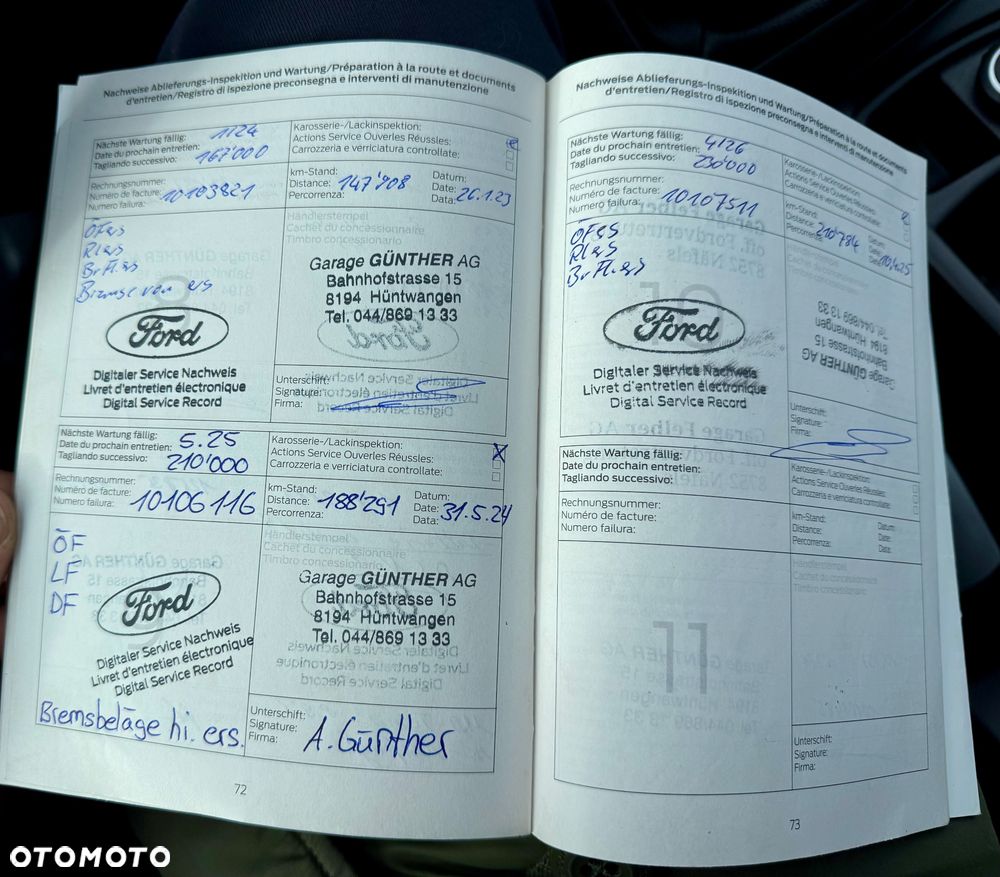 Nachweise Ablieferungs-Inspektion und Wartung/Préparation à la route et documents
d'entretien/Registro di ispezione preconsegna e interventi di manutenzione
Nächste Wartung fällig: 1/24
Date du prochain entretien: 167'000
Tagliando successivo:
Karosserie-/Lackinspektion:
Actions Service Ouverles Réussles:
Carrozzeria e verriciatura controllate:
Rechnungsnummer:
Numéro de facture: 10103821
Numero failura:
km-Stand:
Distance: 147'908
Percorrenza:
Datum:
Date: 26.1.23
Data:
ÖF
Händlerstempel
Cachet du concessionnaire
Timbro concessionario
Garage GÜNTHER AG
Bahnhofstrasse 15
8194 Hüntwangen
Tel. 044/869 13 33
Ford
Digitaler Service Nachweis
Livret d'entretien électronique
Digital Service Record
Unterschrift:
Signature:
Firma:
Nächste Wartung fällig: 5.25
Date du prochain entretien:
Tagliando successivo: 210'000
Karosserie-/Lackinspektion:
Actions Service Ouverles Réussles: X
Carrozzeria e verriciatura controllate:
Rechnungsnummer:
Numéro de facture: 10106116
Numero failura:
km-Stand:
Distance: 188'291
Percorrenza:
Datum:
Date: 31.5.24
Data:
ÖF
LF
DF
Händlerstempel
Cachet du concessionnaire
Timbro concessionario
Garage GÜNTHER AG
Bahnhofstrasse 15
8194 Hüntwangen
Tel. 044/869 13 33
Ford
Digitaler Service Nachweis
Livret d'entretien électronique
Digital Service Record
Bremsbeläge hi. ers.
Unterschrift:
Signature: A. Günther
Firma:
72
Nachweise Ablieferungs-Inspekition und Wartung/Préparation à la route et documents
d'entretien/Registro di ispezione preconsegna e interventi di manutenzione
Nächste Wartung fällig: 4/26
Date du prochain entretien: 230'000
Tagliando successivo:
Karosserie-/Lackinspektion:
Actions Service Ouverles Réussles:
Carrozzeria e verriciatura controllate:
Rechnungsnummer:
Numéro de facture: 10107511
Numero failura:
km-Stand:
Distance: 210'784
Percorrenza:
Datum:
Date:
Data:
Händlerstempel
Cachet du concessionnaire
Timbro concessionario
Garage GÜNTHER AG
Bahnhofstrasse 15
8194 Hüntwangen
Tel. 044/869 13 33
Ford
Digitaler Service Nachweis
Livret d'entretien électronique
Digital Service Record
Unterschrift:
Signature:
Firma:
Nächste Wartung fällig:
Date du prochain entretien:
Tagliando successivo:
Karosserie-/Lackinspektion:
Actions Service Ouverles Réussles:
Carrozzeria e verriciatura controllate:
Rechnungsnummer:
Numéro de facture:
Numero failura:
km-Stand:
Distance:
Percorrenza:
Datum:
Date:
Data:
Händlerstempel
Cachet du concessionnaire
Timbro concessionario
Unterschrift:
Signature:
Firma:
73
OTOMOTO